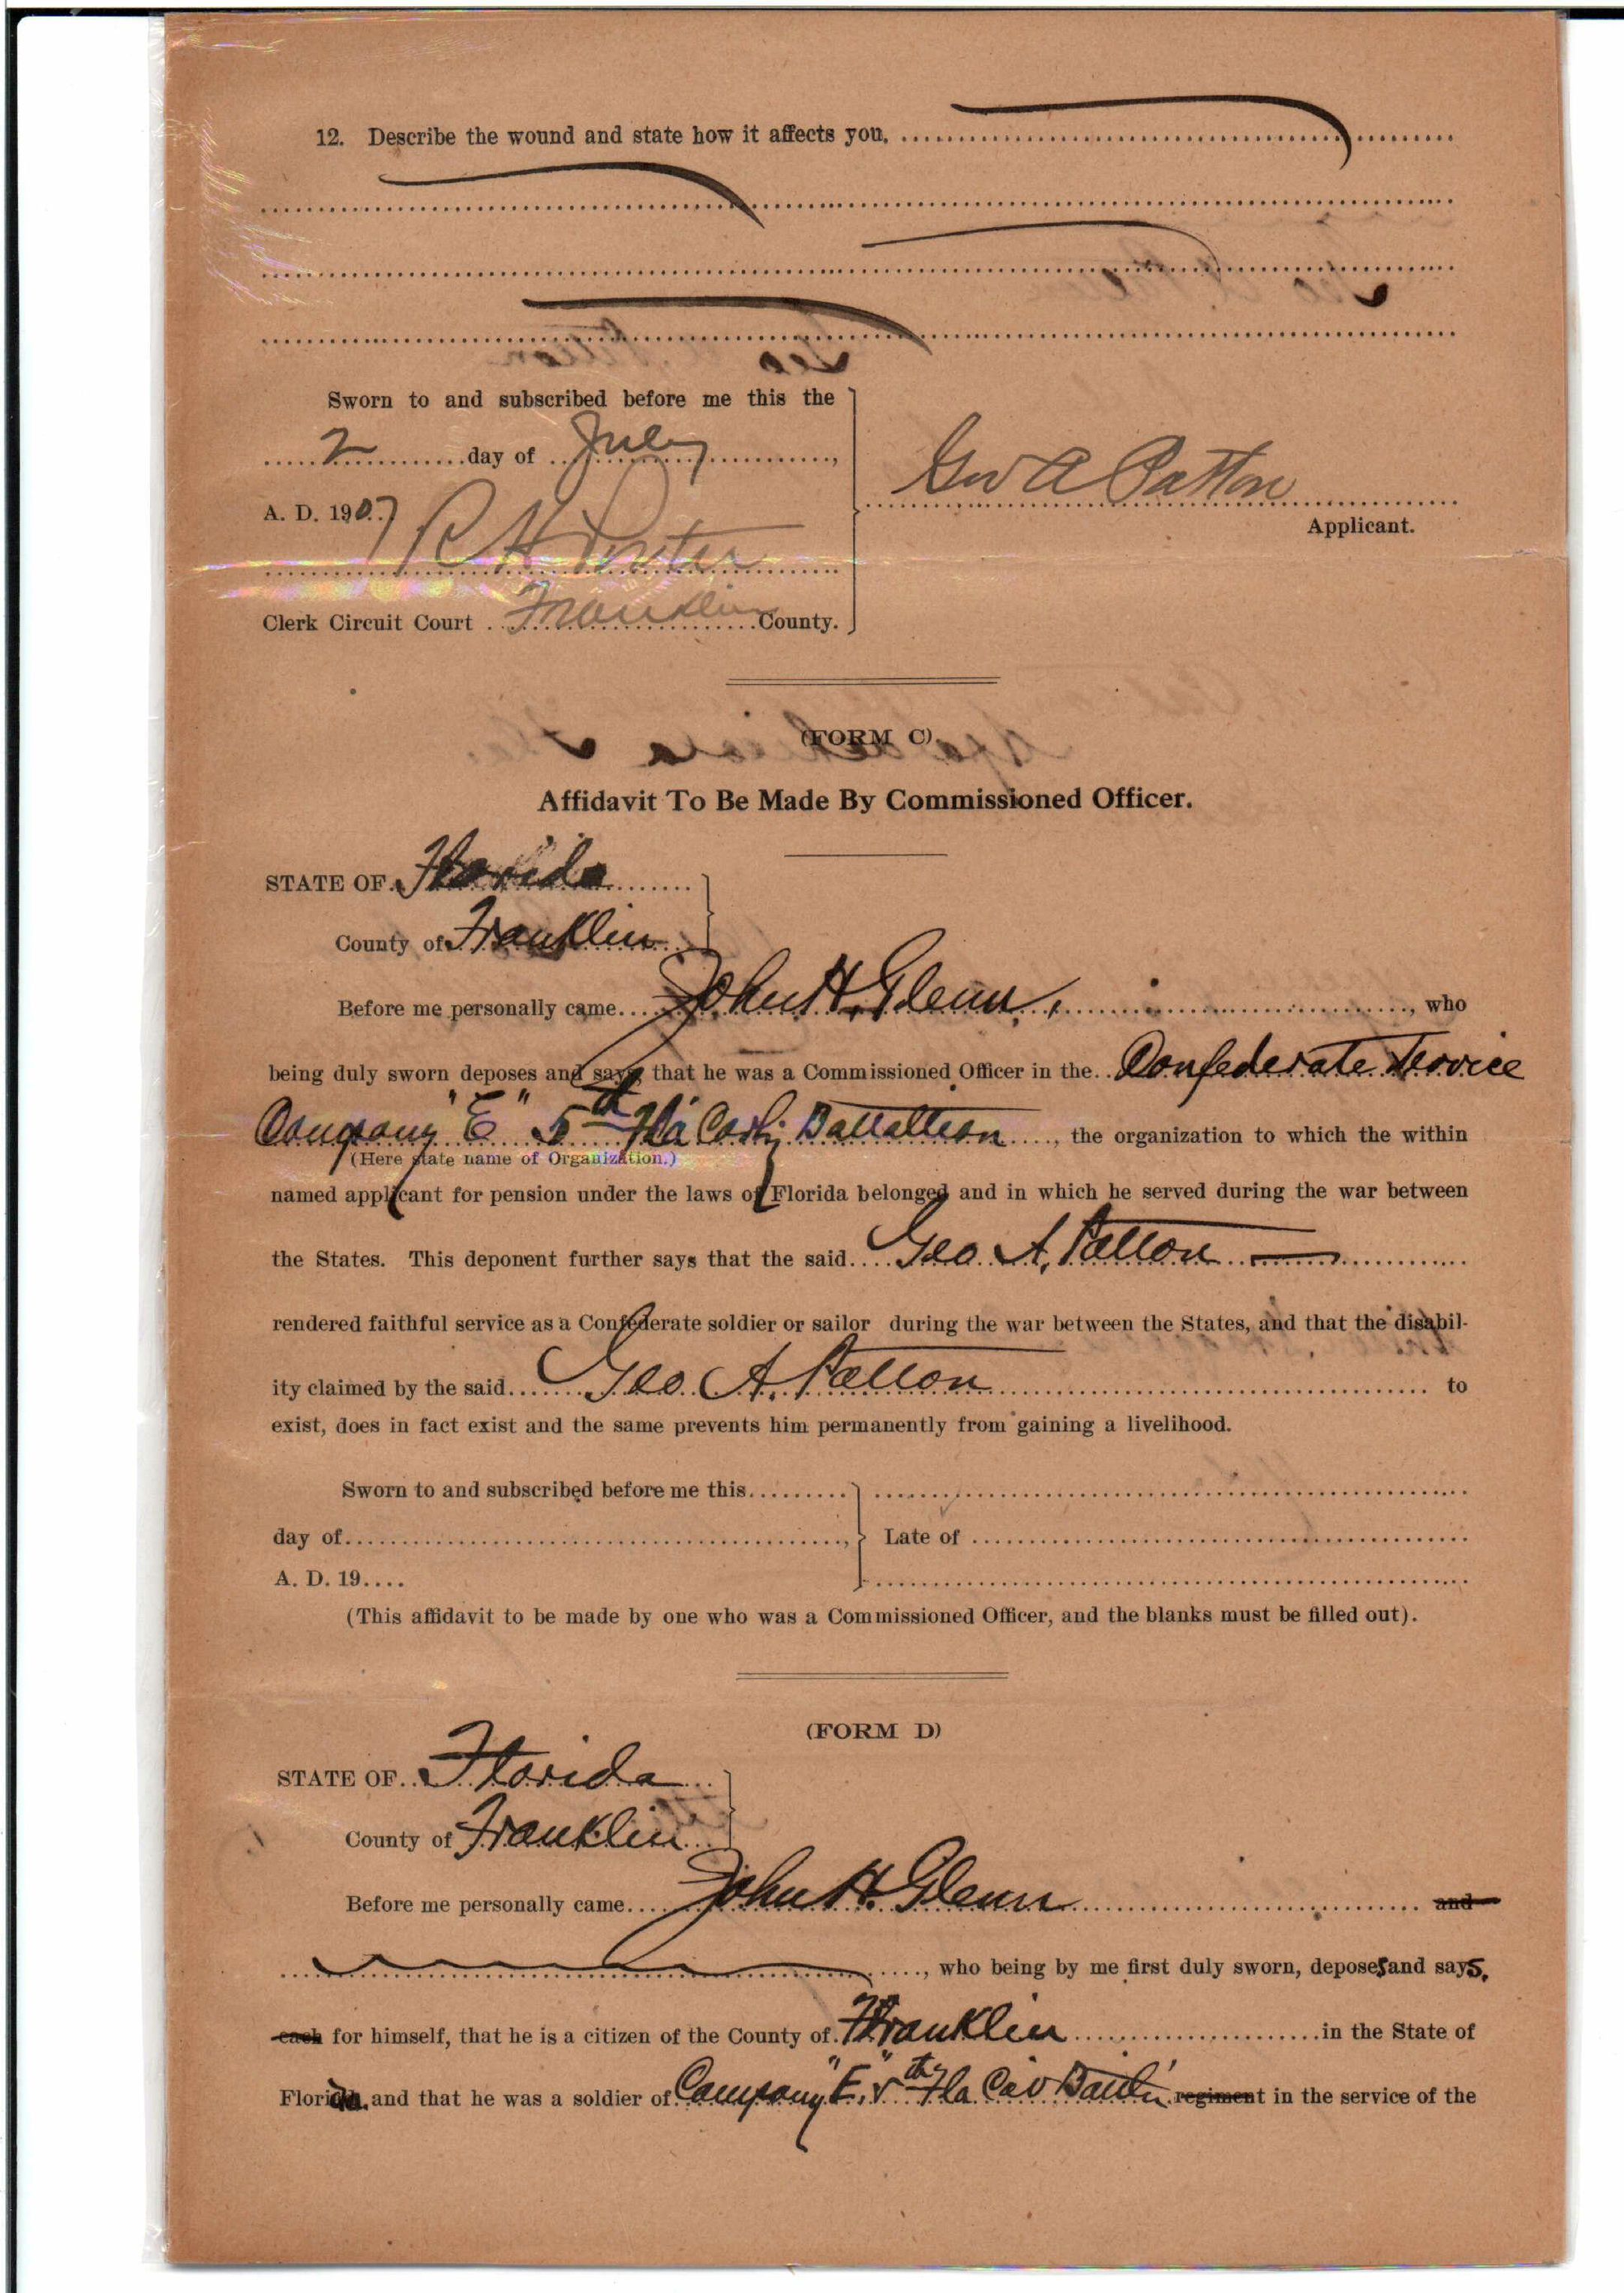 12. Describe the wound and state how it affects you.
Sworn to and subscribed before me this the
2 day of July,
A. D. 1907
R H Porter
Clerk Circuit Court Franklin County.
Geo A Patton
Applicant.
(FORM C)
Affidavit To Be Made By Commissioned Officer.
STATE OF Florida
County of Franklin
Before me personally came John H. Glenn, who
being duly sworn deposes and says that he was a Commissioned Officer in the Confederate Service
Company "E" 5th Fla Battallion, the organization to which the within
(Here state name of Organization.)
named applicant for pension under the laws of Florida belonged and in which he served during the war between
the States. This deponent further says that the said Geo. A. Patton
rendered faithful service as a Confederate soldier or sailor during the war between the States, and that the disabil-
ity claimed by the said Geo A. Patton to
exist, does in fact exist and the same prevents him permanently from gaining a livelihood.
Sworn to and subscribed before me this
day of,
Late of
A. D. 19
(This affidavit to be made by one who was a Commissioned Officer, and the blanks must be filled out).
(FORM D)
STATE OF Florida
County of Franklin
Before me personally came John H. Glenn and
, who being by me first duly sworn, deposes and says,
each for himself, that he is a citizen of the County of Franklin in the State of
Florida, and that he was a soldier of Company "E" 5th Fla Cav regiment in the service of the